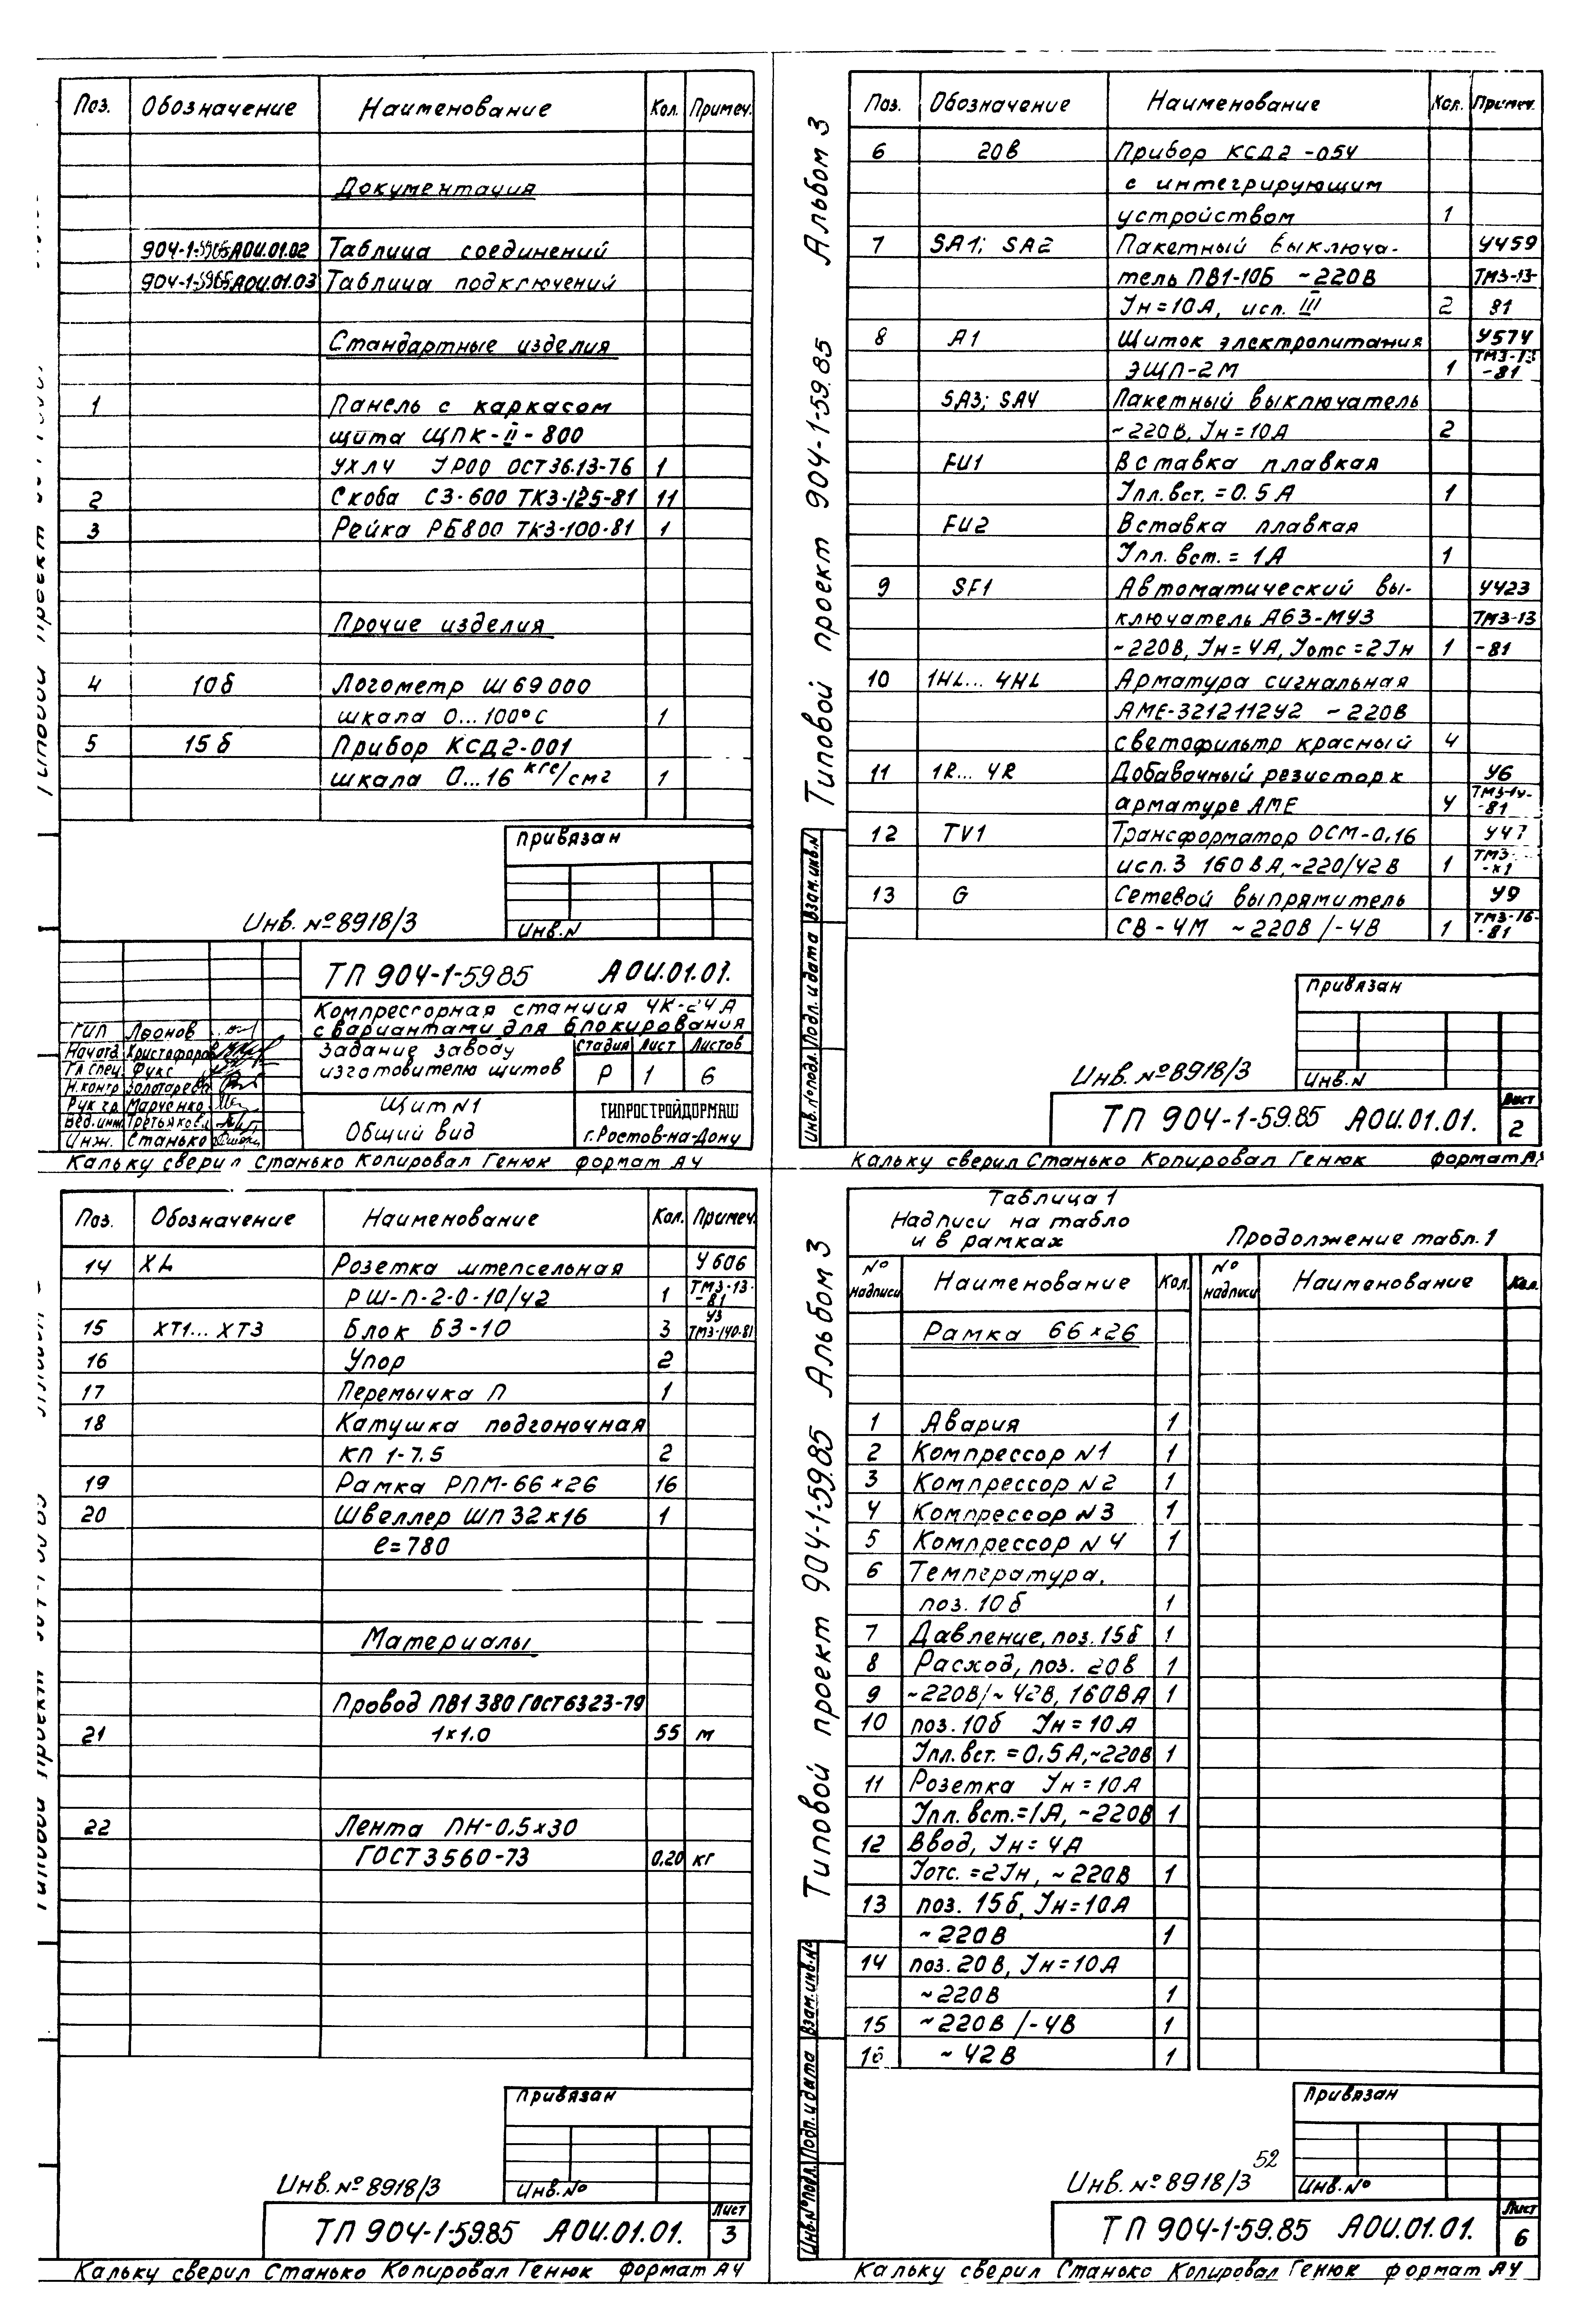 Поз. Обозначение Наименование Кол. Примеч.
Документация
904-1-59.85 АОИ.01.02 Таблица соединений
904-1-59.85 АОИ.01.03 Таблица подключений
Стандартные изделия
1 Панель с каркасом
щита ЩПК-II-800
УХЛ4 УР00 ОСТ36.13-76 1
2 Скоба С3-600 ТК3-125-81 11
3 Рейка РБ800 ТК3-100-81 1
Прочие изделия
4 10б Логометр Ш69000
шкала 0...100°С 1
5 15б Прибор КСД2-001
шкала 0...16 кгс/см2 1
привязан
Инв.N
Инв. №8918/3
ТП 904-1-59.85 АОИ.01.01.
Компрессорная станция 4К-24А
с вариантами для блокирования
Задание заводу
изготовителю щитов
Стадия Лист Листов
Р 1 6
Щит N1
Общий вид
ГИПРОСТРОЙДОРМАШ
г.Ростов-на-Дону
ГИП Леонов
Нач.отд. Христофоров
Гл.спец. Фукс
Н.контр. Золотарева
Рук.гр. Марченко
Вед.инж. Третьякова
Инж. Станько
Кальку сверил Станько Копировал Генюк формат А4
Альбом 3
Типовой проект 904-1-59.85
Поз. Обозначение Наименование Кол. Примеч.
6 20в Прибор КСД2-054
с интегрирующим
устройством 1
7 SA1; SA2 Пакетный выключа- У459
тель ПВ1-10Б ~220В ТМ3-13-
Iн=10А, исп. III 2 81
8 А1 Щиток электропитания У574
ЭЩП-2М 1 ТМ3-13-81
SA3; SA4 Пакетный выключатель
~220В, Iн=10А 2
FU1 Вставка плавкая
Iпл.вст.=0.5А 1
FU2 Вставка плавкая
Iпл. вст.= 1А 1
9 SF1 Автоматический вы- У423
ключатель А63-МУ3 ТМ3-13
~220В, Iн=4А, Iотс=2Iн 1 -81
10 1HL... 4HL Арматура сигнальная
АМЕ-3212112У2 ~220В
светофильтр красный 4
11 1R... 4R Добавочный резистор к У6
арматуре АМЕ 4 ТМ3-14-81
12 TV1 Трансформатор ОСМ-0,16
исп.3 160ВА,~220/42В 1
13 G Сетевой выпрямитель У9
СВ-4М ~220В/-4В 1 ТМ3-16-81
привязан
Инв.N
Инв. №8918/3
ТП 904-1-59.85 АОИ.01.01.
Лист
2
Инв.N подл. Подп. и дата Взам.инв.N
Кальку сверил Станько Копировал Генюк формат А4
Поз. Обозначение Наименование Кол. Примеч.
14 Розетка штепсельная У606
РШ-П-2-0-10/42 1 ТМ3-13-81
15 XT1... XT3 Блок БЗ-10 3 У3 ТМ3-140-81
16 Упор 2
17 Перемычка П 1
18 Катушка подгоночная
КП 1-7.5 2
19 Рамка РПМ-66×26 16
20 Швеллер ШП 32×16 1
ℓ=780
Материалы
Провод ПВ1 380 ГОСТ6323-79
21 1×1.0 55 м
22 Лента ПН-0.5×30
ГОСТ3560-73 0,20 кг
привязан
Инв.№
Инв. №8918/3
ТП 904-1-59.85 АОИ.01.01.
Лист
3
Кальку сверил Станько Копировал Генюк формат А4
Типовой проект 904-1-59.85 Альбом 3
Таблица 1
Надписи на табло
и в рамках
Продолжение табл.1
№ надписи Наименование Кол. № надписи Наименование Кол.
Рамка 66×26
1 Авария 1
2 Компрессор N1 1
3 Компрессор N2 1
4 Компрессор N3 1
5 Компрессор N4 1
6 Температура,
поз. 10б 1
7 Давление, поз. 15б 1
8 Расход, поз. 20в 1
9 ~220В/~42В, 160ВА 1
10 поз. 10б Iн=10А
Iпл.вст.=0,5А,~220В 1
11 Розетка Iн=10А
Iпл.вст.=1А, ~220В 1
12 Ввод, Iн=4А
Iотс.=2Iн, ~220В 1
13 поз. 15б, Iн=10А
~220В 1
14 поз. 20в, Iн=10А
~220В 1
15 ~220В/-4В 1
16 ~42В 1
привязан
Инв.№
52
Инв. №8918/3
ТП 904-1-59.85 АОИ.01.01.
Лист
6
Инв.№ подл. Подп. и дата Взам.инв.№
Кальку сверил Станько Копировал Генюк формат А4